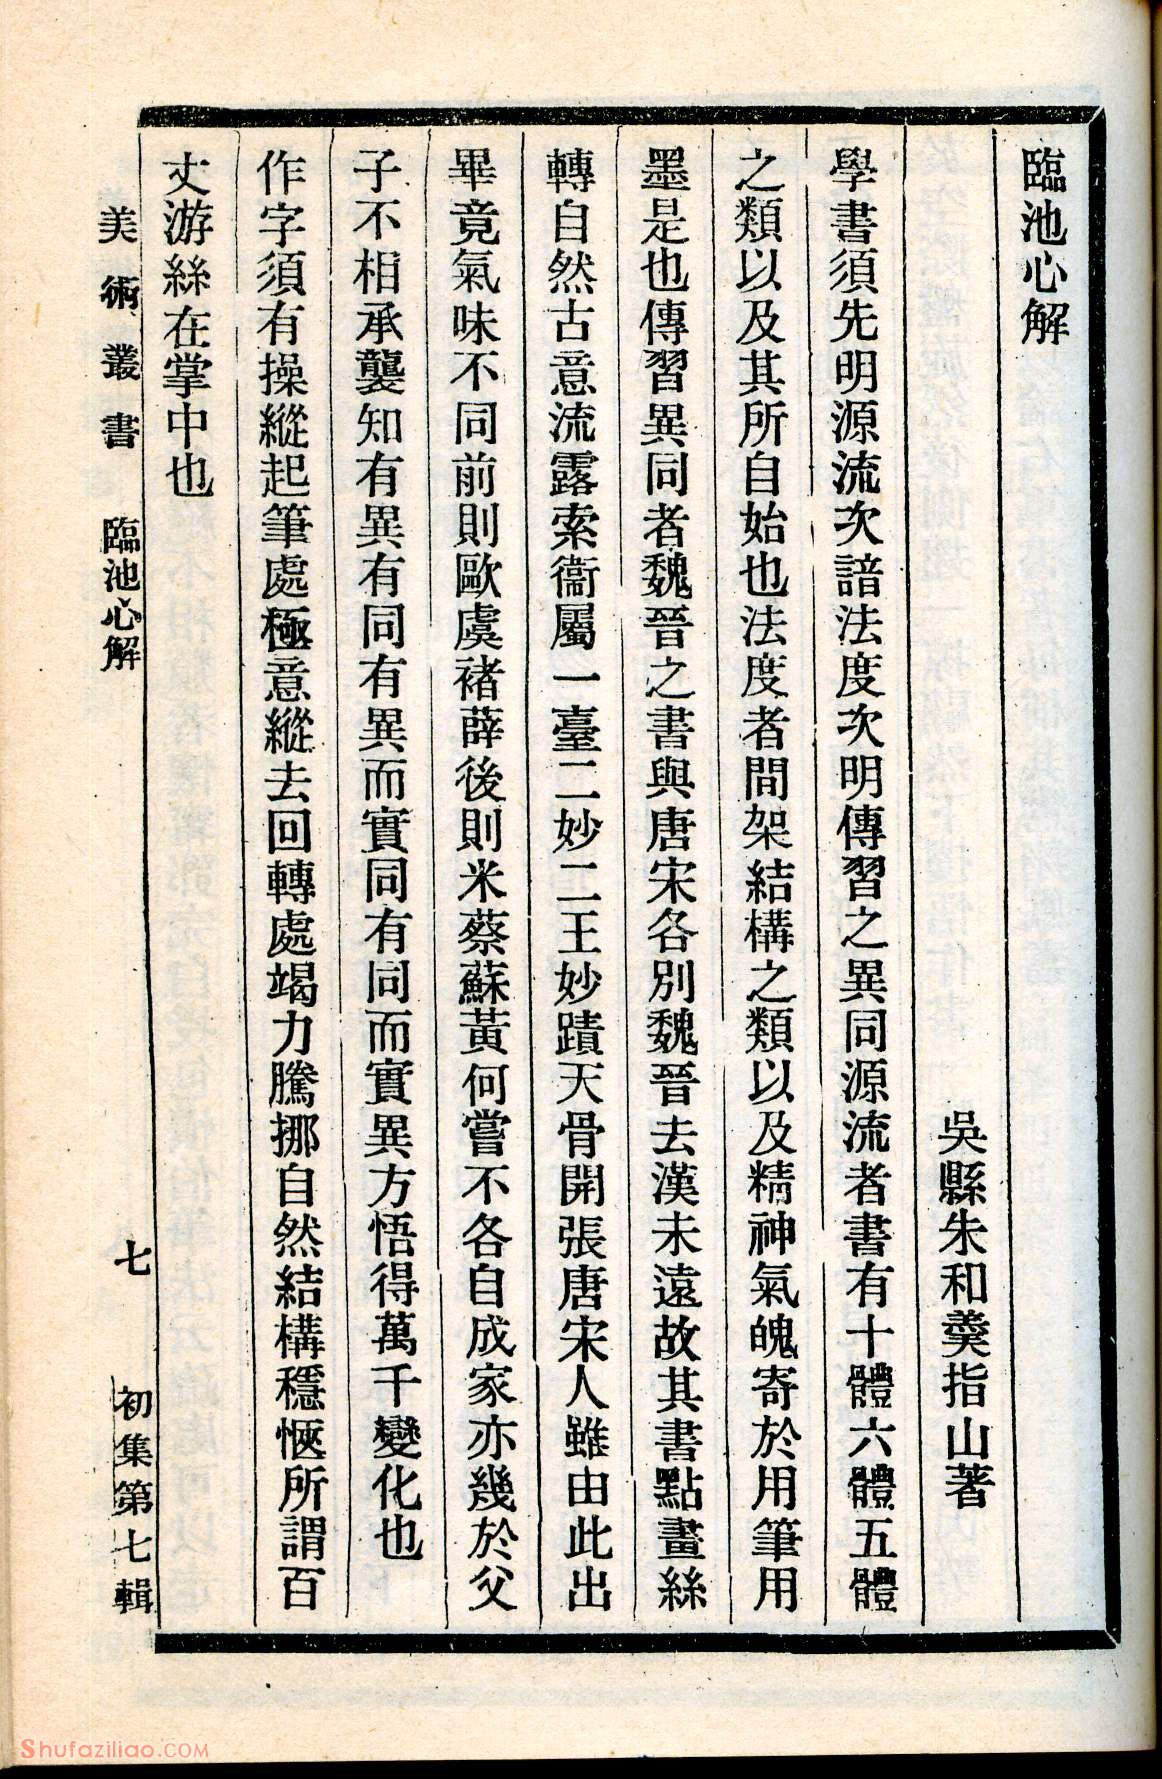 臨池心解
吳縣朱和羹指山著
學書須先明源流次諳法度次明傳習之異同源流者書有十體六體五體
之類以及其所自始也法度者間架結構之類以及精神氣魄寄於用筆用
墨是也傳習異同者魏晉之書與唐宋各別魏晉去漢未遠故其書點畫絲
轉自然古意流露索衞屬一臺二妙二王妙蹟天骨開張唐宋人雖由此出
畢竟氣味不同前則歐虞褚薛後則米蔡蘇黃何嘗不各自成家亦幾於父
子不相承襲知有異有同有異而實同有同而實異方悟得萬千變化也
作字須有操縱起筆處極意縱去回轉處竭力騰挪自然結構穩愜所謂百
丈游絲在掌中也
美術叢書 臨池心解 七 初集第七輯
Shufaziliao.COM